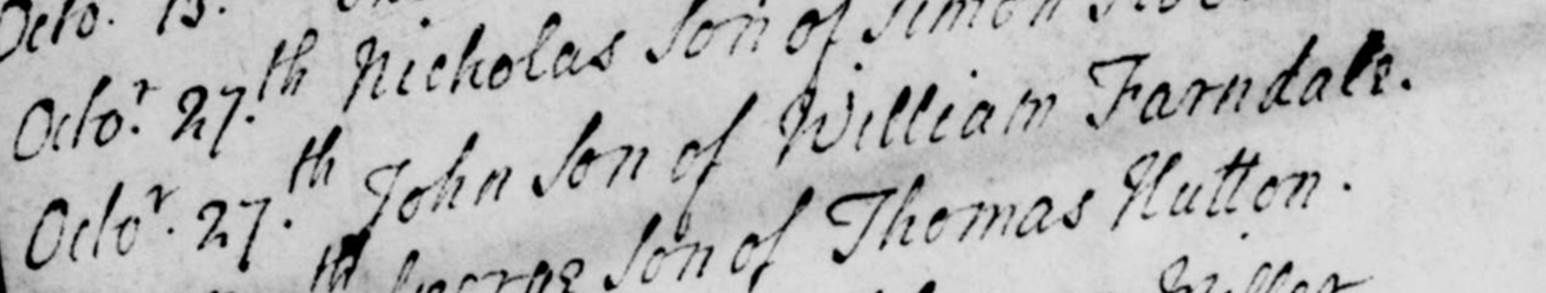 Octo. 13.
Octo.r 27.th Nicholas Son of Simon
Octo.r 27.th John Son of William Farndale.
th George Son of Thomas Hutton.
Miller